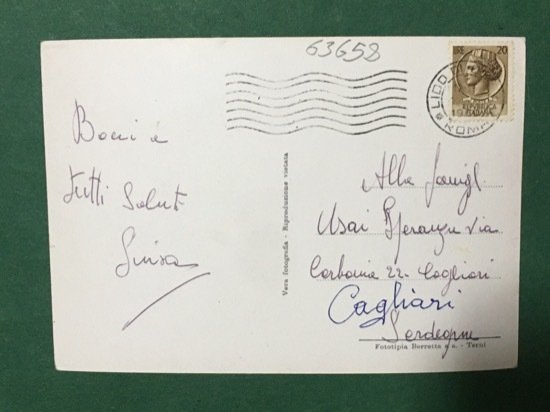 63658
20
LIDO
ROMA
Baci a
tutti Saluti
Luisa
Vera fotografia - Riproduzione vietata
Alla famigl.
Usai Speranza via
Carbonia 22 - Cagliari
Cagliari
Sardegna
Fototipia Berretta - Terni